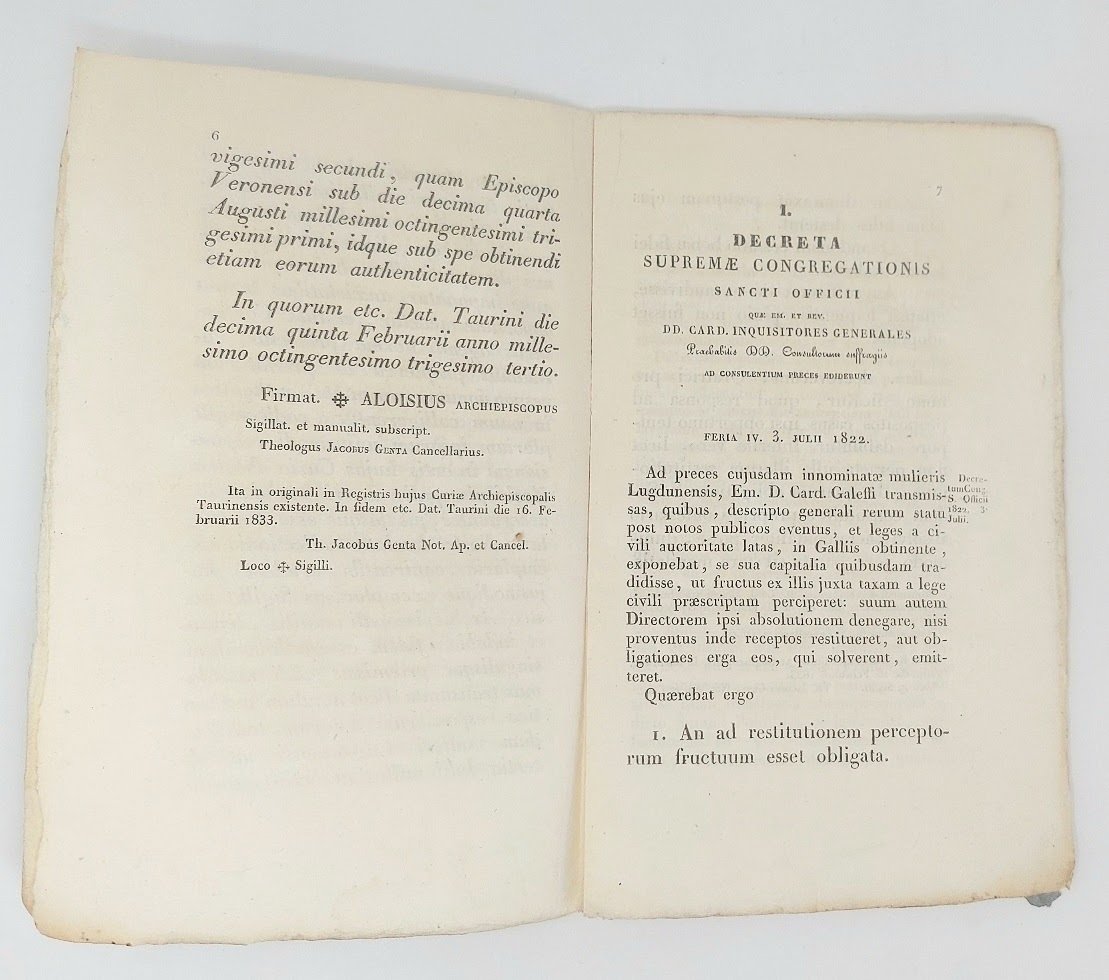 6
vigesimi secundi, quam Episcopo
Veronensi sub die decima quarta
Augusti millesimi octingentesimi tri-
gesimi primi, idque sub spe obtinendi
etiam eorum authenticitatem.
In quorum etc. Dat. Taurini die
decima quinta Februarii anno mille-
simo octingentesimo trigesimo tertio.
Firmat. ✠ ALOISIUS ARCHIEPISCOPUS
Sigillat. et manualit. subscript.
Theologus JACOBUS GENTA Cancellarius.
Ita in originali in Registris hujus Curiæ Archiepiscopalis
Taurinensis existente. In fidem etc. Dat. Taurini die 16. Fe-
bruarii 1833.
Th. Jacobus Genta Not. Ap. et Cancel.
Loco ✠ Sigilli.
7
I.
DECRETA
SUPREMÆ CONGREGATIONIS
SANCTI OFFICII
QUÆ EM. ET REV.
DD. CARD. INQUISITORES GENERALES
Præhabitis DD. Consultorum suffragiis
AD CONSULENTIUM PRECES EDIDERUNT
FERIA IV. 3. JULII 1822.
Ad preces cujusdam innominatæ mulieris
Lugdunensis, Em. D. Card. Galeffi transmis-
sas, quibus, descripto generali rerum statu
post notos publicos eventus, et leges a ci-
vili auctoritate latas, in Galliis obtinente,
exponebat, se sua capitalia quibusdam tra-
didisse, ut fructus ex illis juxta taxam a lege
civili præscriptam perciperet: suum autem
Directorem ipsi absolutionem denegare, nisi
proventus inde receptos restitueret, aut ob-
ligationes erga eos, qui solverent, emit-
teret.
Quærebat ergo
1. An ad restitutionem percepto-
rum fructuum esset obligata.
Decre-
tum Cong.
S. Officii
1822. 3.
Julii.